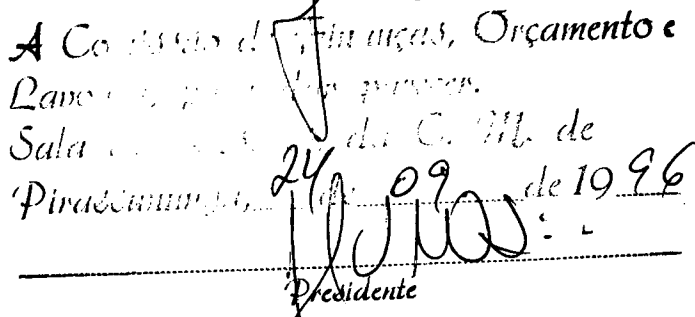 A Comissão de Finanças, Orçamento e
Lavoura, para dar parecer.
Sala da C. M. de
Pirassununga, 24 de 09 de 1996
Presidente